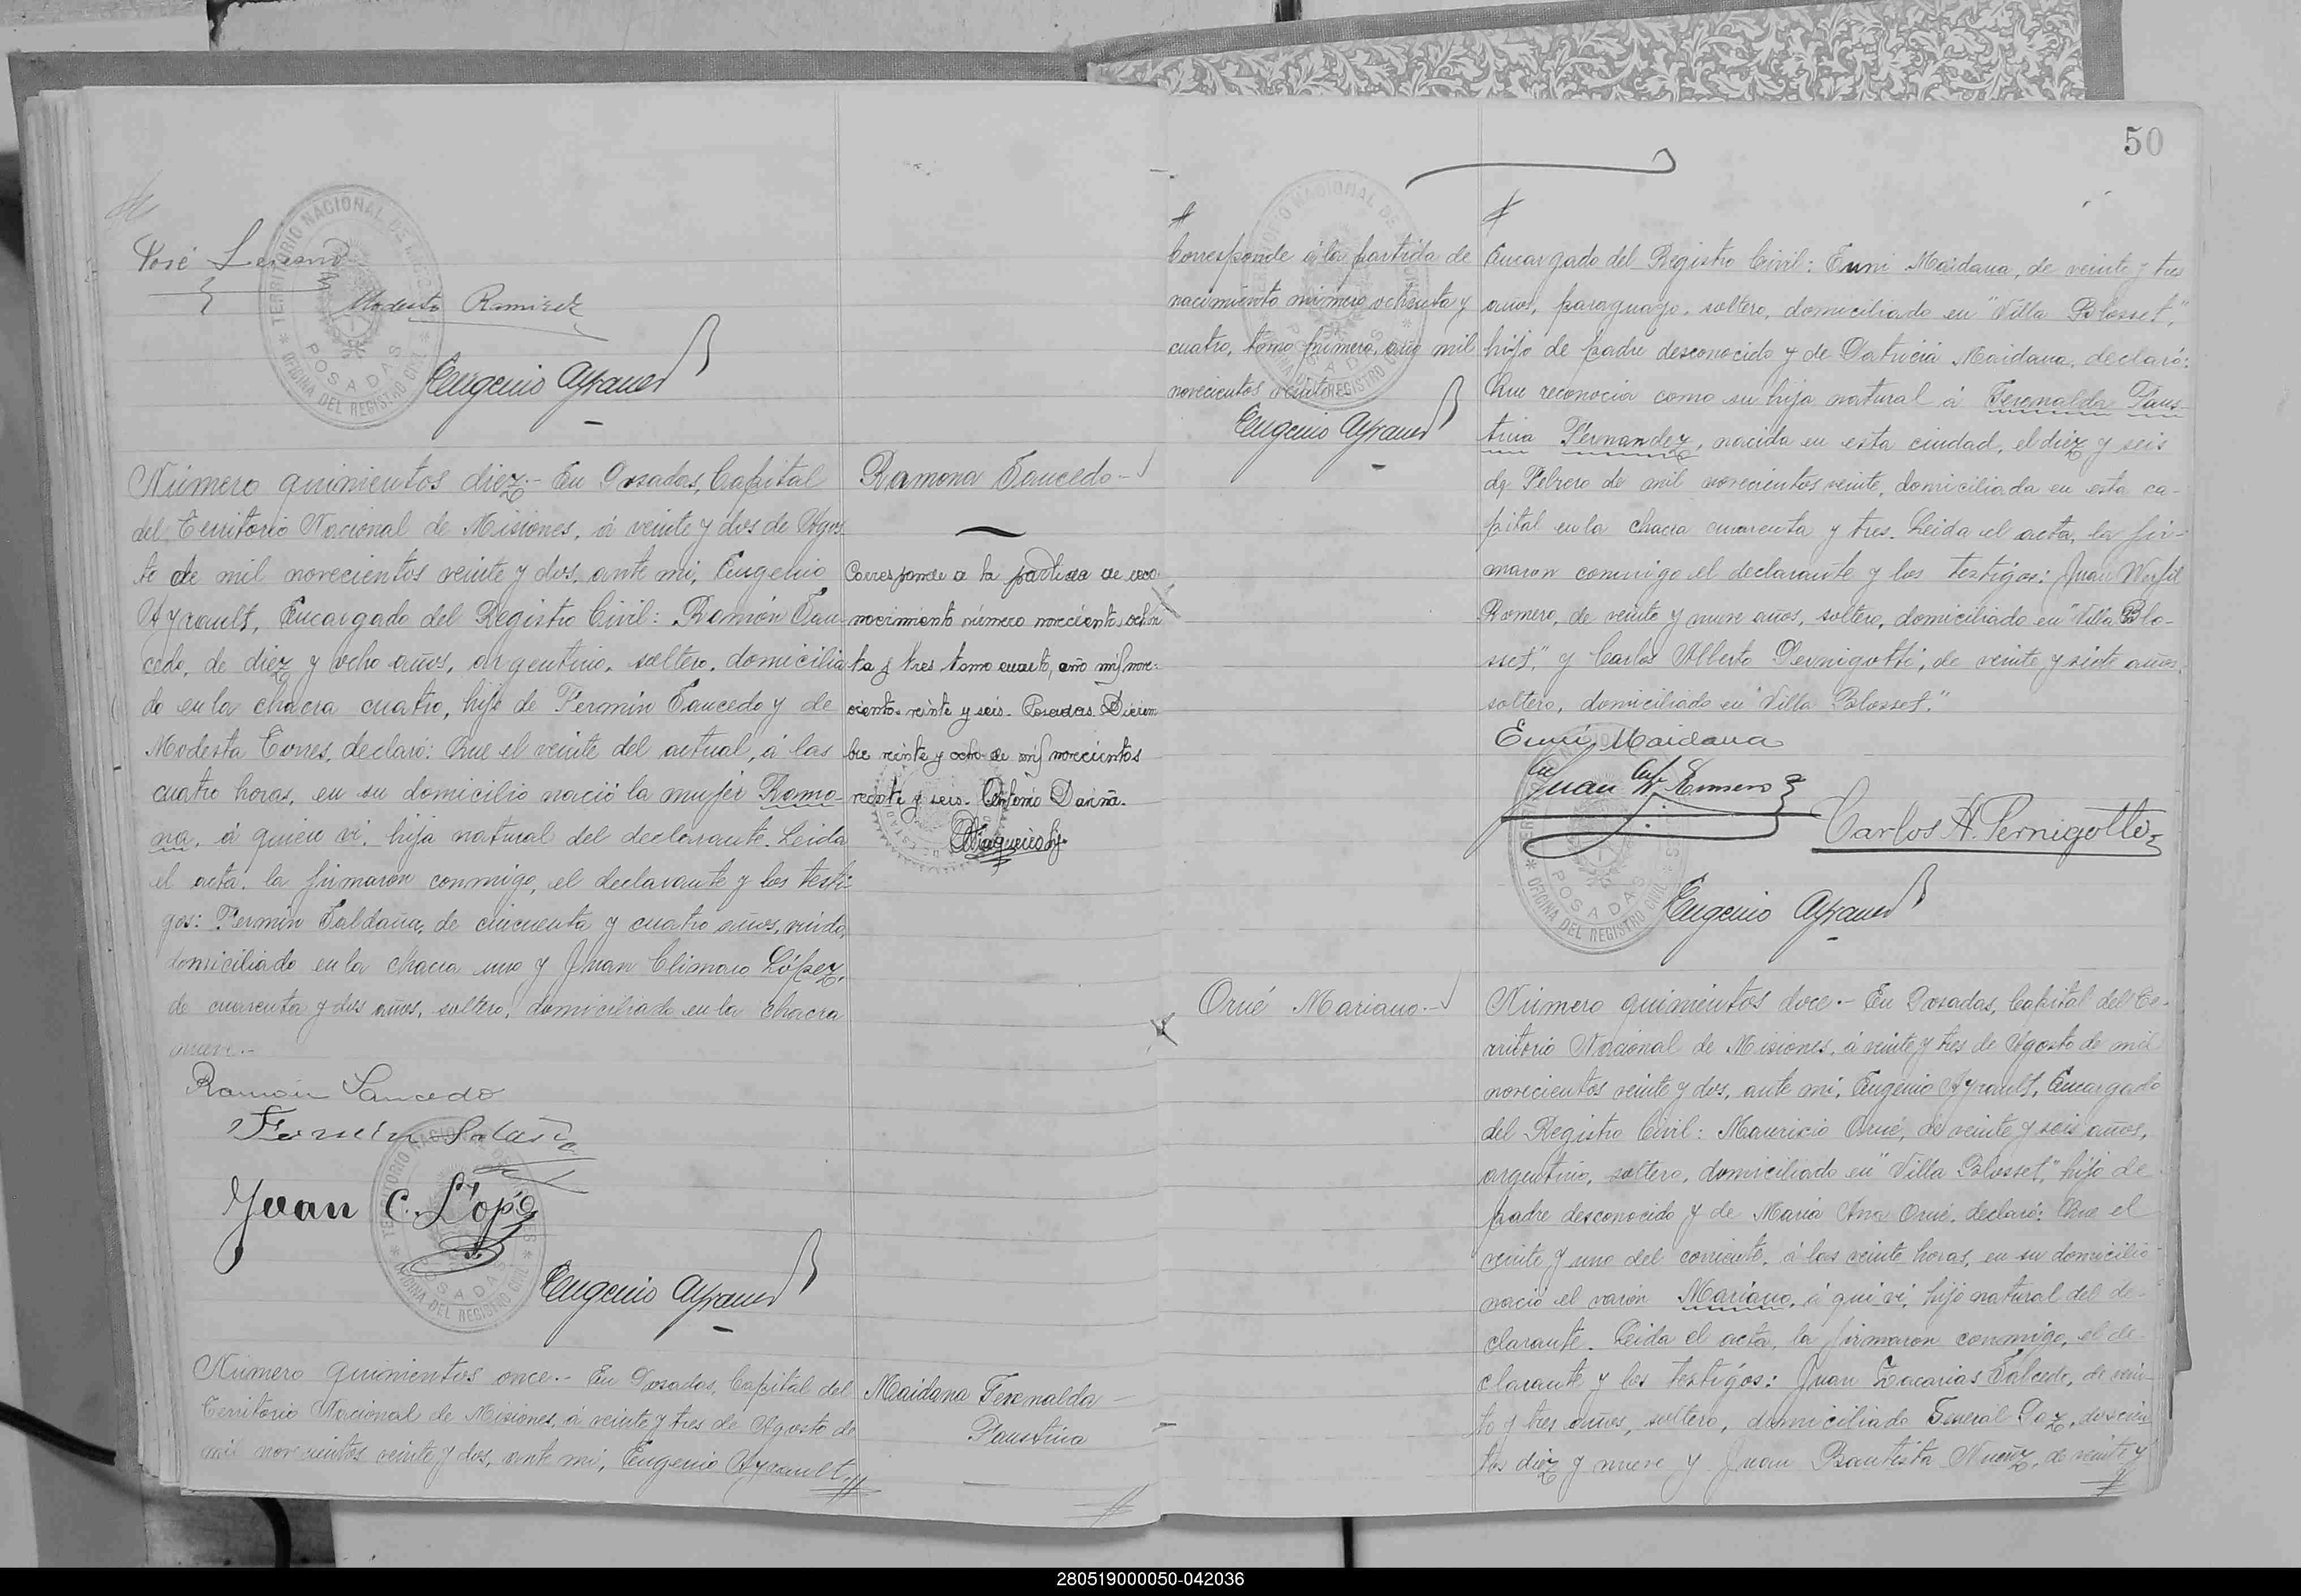 José
Modesto Ramirez
TERRITORIO NACIONAL DE MISIONES
POSADAS
OFICINA DEL REGISTRO CIVIL
Eugenio Ayrault
Número quinientos diez.- En Posadas, Capital
del Territorio Nacional de Misiones, á veinte y dos de Agos-
to de mil novecientos veinte y dos, ante mi, Eugenio
Ayrault, Encargado del Registro Civil: Ramón Sau-
cedo, de diez y ocho años, argentino, soltero, domicilia-
do en la chacra cuatro, hijo de Fermin Saucedo y de
Modesta Torres, declaró: Que el veinte del actual, á las
cuatro horas, en su domicilio nació la mujer Ramo-
na, á quien vi, hija natural del declarante. Leida
el acta, la firmaron conmigo, el declarante y los testi-
gos: Fermin Saldaña, de cincuenta y cuatro años, viudo,
domiciliado en la chacra uno y Juan Climaco López,
de cuarenta y dos años, soltero, domiciliado en la chacra
nueve.-
Ramón Saucedo
Fermin Saldaña
Juan C. López
TERRITORIO NACIONAL DE MISIONES
POSADAS
OFICINA DEL REGISTRO CIVIL
Eugenio Ayrault
Número quinientos once.- En Posadas, Capital del
Territorio Nacional de Misiones, á veinte y tres de Agosto de
mil novecientos veinte y dos, ante mi, Eugenio Ayrault,//
Ramona Saucedo-
Corresponde a la partida de reco-
nocimiento número novecientos ochen
ta y tres tomo cuarto, año mil nove-
cientos veinte y seis. Posadas. Diciem
bre veinte y ocho de mil novecientos
veinte y seis. Antonio Dariña.
Maidana Ferenalda
Faustina
50
Corresponde á la partida de
nacimiento número ochenta y
cuatro, tomo primero, año mil
novecientos veinte
TERRITORIO NACIONAL DE MISIONES
POSADAS
OFICINA DEL REGISTRO CIVIL
Eugenio Ayrault
Encargado del Registro Civil: Enni Maidana, de veinte y tres
años, paraguayo, soltero, domiciliado en "Villa Blosset",
hijo de padre desconocido y de Patricia Maidana, declaró:
Que reconocia como su hija natural á Ferenalda Faus-
tina Fernandez, nacida en esta ciudad, el diez y seis
de Febrero de mil novecientos veinte, domiciliada en esta ca-
pital en la chacra cuarenta y tres. Leida el acta, la fir-
maron conmigo el declarante y los testigos: Juan
Romero, de veinte y nueve años, soltero, domiciliado en "Villa Blo-
sset", y Carlos Alberto Pernigotti, de veinte y siete años,
soltero, domiciliado en "Villa Blosset".
Enni Maidana
Juan Romero
Carlos A. Pernigotti
TERRITORIO NACIONAL DE MISIONES
POSADAS
OFICINA DEL REGISTRO CIVIL
Eugenio Ayrault
Orué Mariano.-
Número quinientos doce.- En Posadas, Capital del Te-
rritorio Nacional de Misiones, á veinte y tres de Agosto de mil
novecientos veinte y dos, ante mi, Eugenio Ayrault, Encargado
del Registro Civil: Mauricio Orué, de veinte y seis años,
argentino, soltero, domiciliado en "Villa Blosset", hijo de
padre desconocido y de Maria Ana Orué, declaró: Que el
veinte y uno del corriente, á las veinte horas, en su domicilio
nació el varón Mariano, á qui vi, hijo natural del de-
clarante. Leida el acta, la firmaron conmigo, el de-
clarante y los testigos: Juan Zacarias Salcedo, de vein-
te y tres años, soltero, domiciliado General Paz, doscien
tos diez y nueve y Juan Bautista Nuñez, de veinte y
280519000050-042036